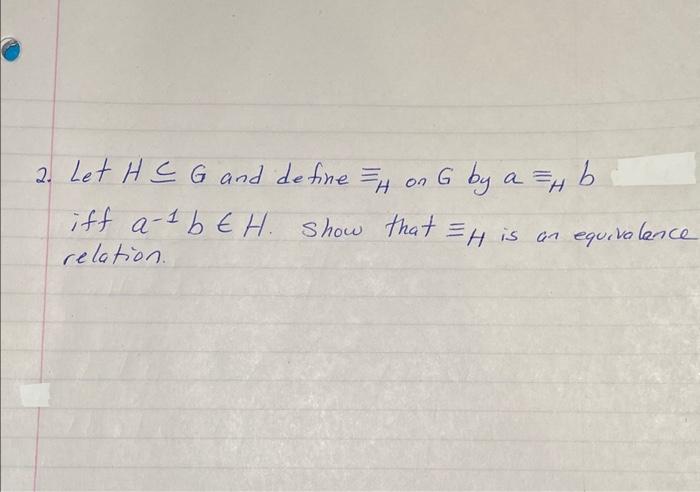 2. Let H ⊆ G and define ≡_H on G by a ≡_H b
iff a⁻¹b ∈ H. Show that ≡_H is an equivalence
relation.